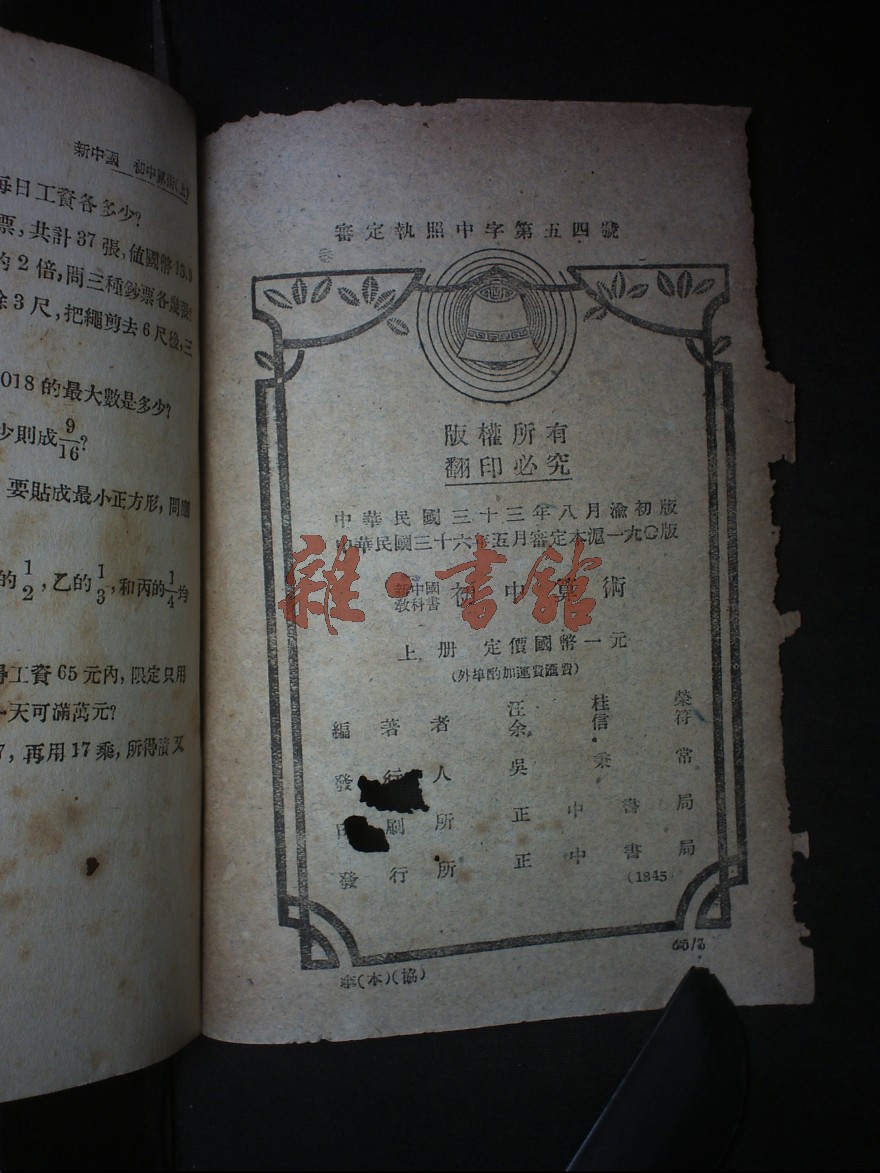 新中國 初中算術(上)
每日工資各多少?
票,共計37張,值國幣19.9
的2倍,問三種鈔票各幾張?
餘3尺,把繩剪去6尺後,三
018的最大數是多少?
少則成9/16?
要貼成最小正方形,問應
的1/2,乙的1/3,和丙的1/4均
得工資65元內,限定只用
天可滿萬元?
7,再用17乘,所得積又
審定執照中字第五四號
版權所有
翻印必究
中華民國三十三年八月渝初版
中華民國三十六年五月審定本滬一九〇版
雜·書館
新中國教科書 初中算術
上册 定價國幣一元
(外埠酌加運費匯費)
編著者 汪桂榮 余信符
發行人 吳秉常
印刷所 正中書局
發行所 正中書局
(1845)
(本)(協)